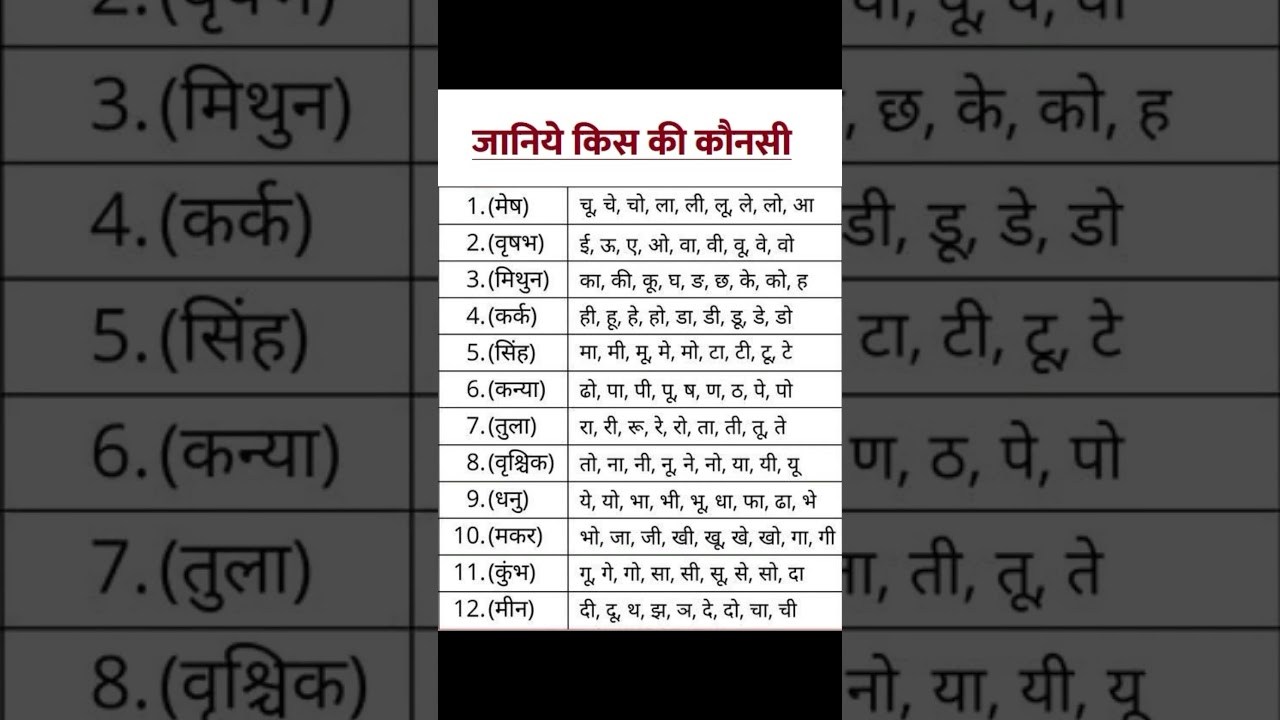 जानिये किस की कौनसी
1.(मेष) चू, चे, चो, ला, ली, लू, ले, लो, आ
2.(वृषभ) ई, ऊ, ए, ओ, वा, वी, वू, वे, वो
3.(मिथुन) का, की, कू, घ, ङ, छ, के, को, ह
4.(कर्क) ही, हू, हे, हो, डा, डी, डू, डे, डो
5.(सिंह) मा, मी, मू, मे, मो, टा, टी, टू, टे
6.(कन्या) ढो, पा, पी, पू, ष, ण, ठ, पे, पो
7.(तुला) रा, री, रू, रे, रो, ता, ती, तू, ते
8.(वृश्चिक) तो, ना, नी, नू, ने, नो, या, यी, यू
9.(धनु) ये, यो, भा, भी, भू, धा, फा, ढा, भे
10.(मकर) भो, जा, जी, खी, खू, खे, खो, गा, गी
11.(कुंभ) गू, गे, गो, सा, सी, सू, से, सो, दा
12.(मीन) दी, दू, थ, झ, ञ, दे, दो, चा, ची